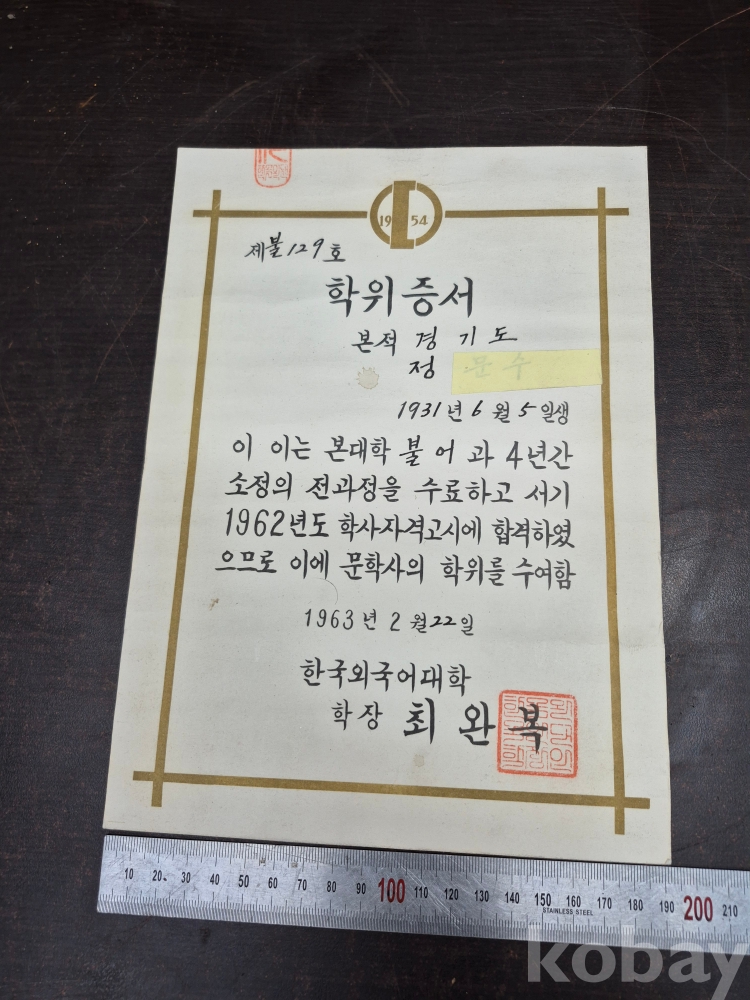 19 54
제불129호
학위증서
본적 경기도
정 문수
1931년 6월 5일생
이 이는 본대학 불어과 4년간
소정의 전과정을 수료하고 서기
1962년도 학사자격고시에 합격하였
으므로 이에 문학사의 학위를 수여함
1963년 2월 22일
한국외국어대학
학장 최완복
10 20 30 40 50 60 70 80 90 100 110 120 130 140 150 160 170 180 190 200 210
STAINLESS STEEL
kobay